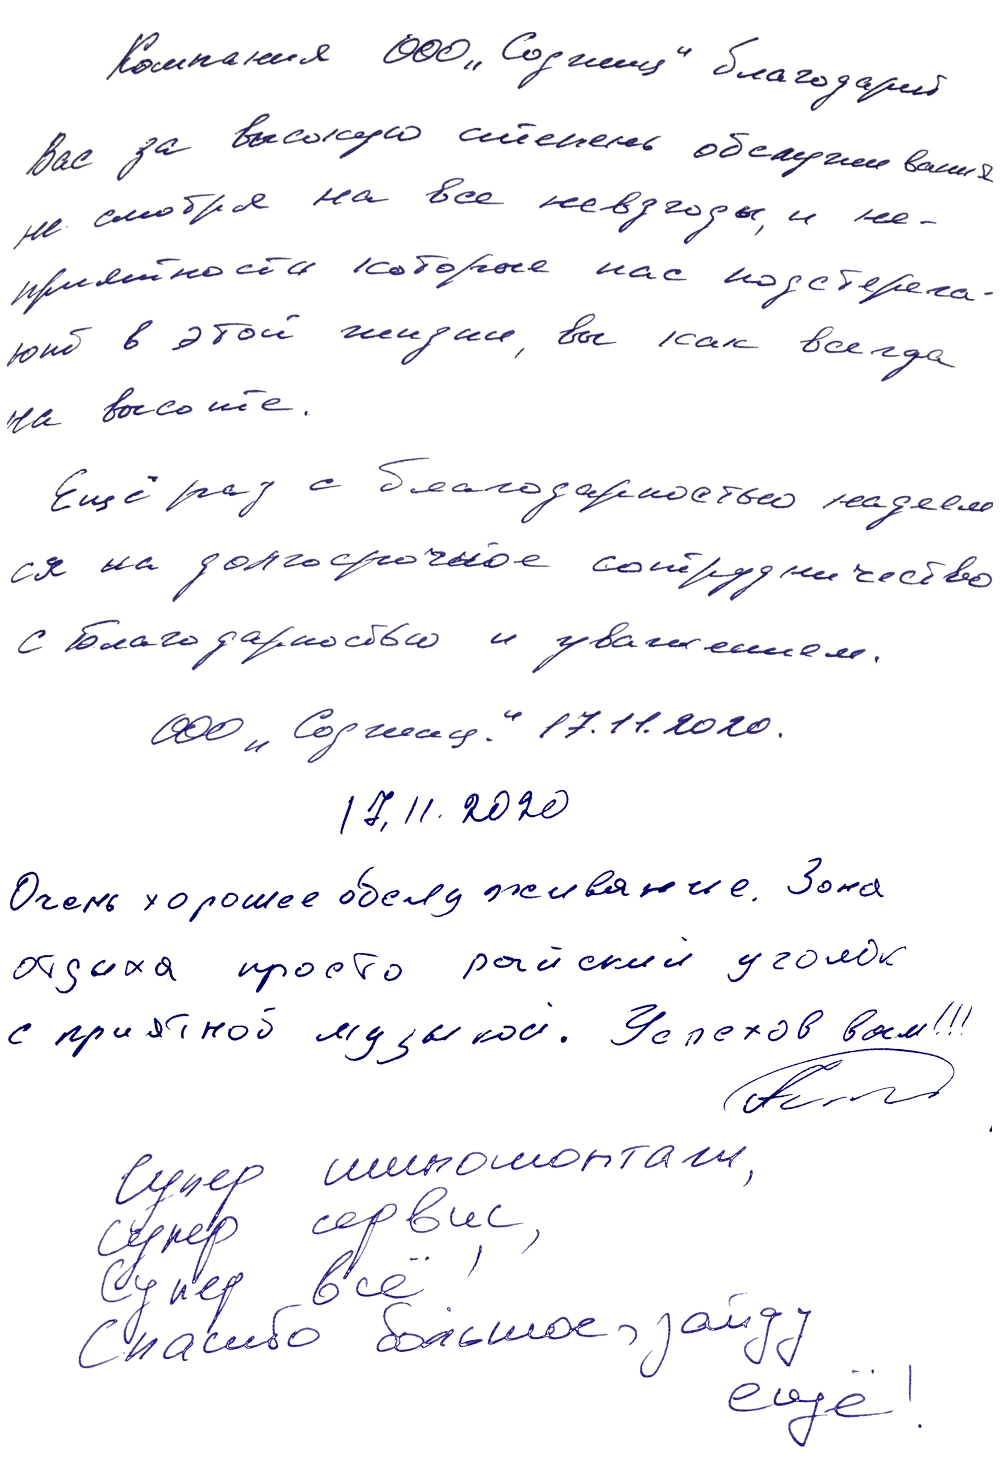 Компания ООО „Согжиц" благодарит
Вас за высокую степень обслуживания
не смотря на все невзгоды, и не-
приятности которые нас подстерега-
ют в этой жизни, вы как всегда
на высоте.
Ещё раз с благодарностью надеем
ся на долгосрочное сотрудничество
с благодарностью и уважением.
ООО „Согжиц". 17.11.2020.
17.11.2020
Очень хорошее обслуживание. Зона
отдыха просто райский уголок
с приятной музыкой. Успехов вам!!!
Супер шиномонтаж,
супер сервис,
Супер всё!
Спасибо большое, зайду
ещё!